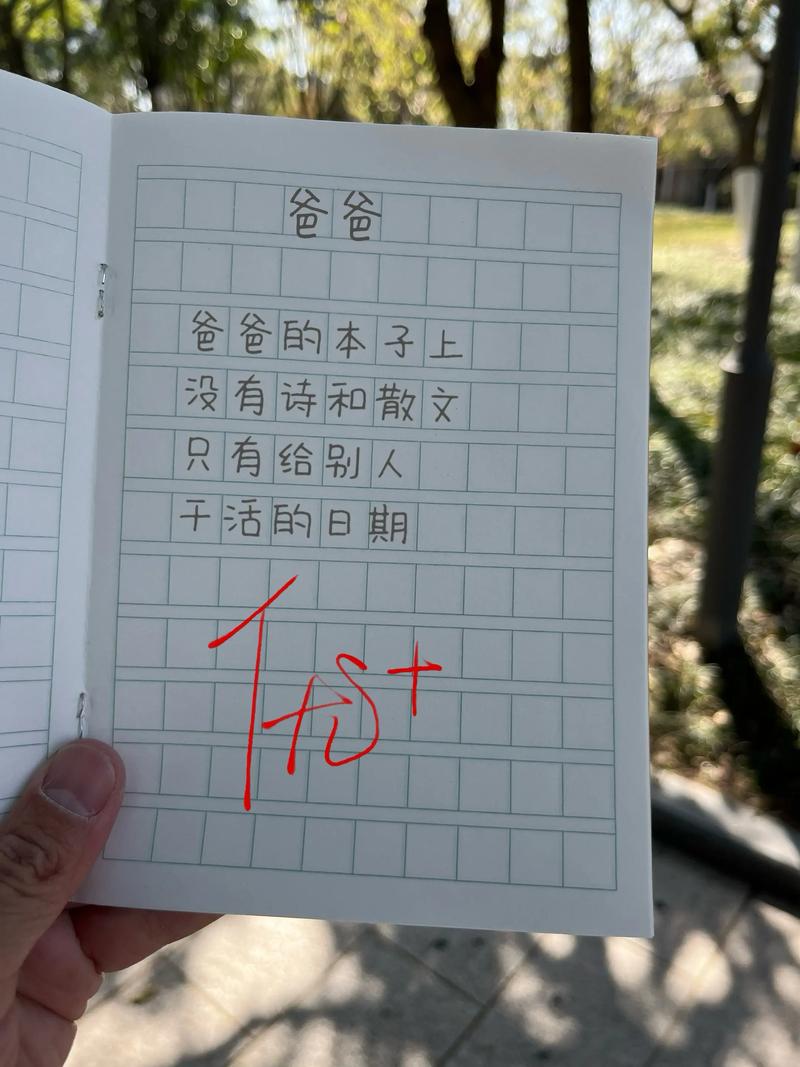 爸爸
爸爸的本子上
没有诗和散文
只有给别人
干活的日期
优+